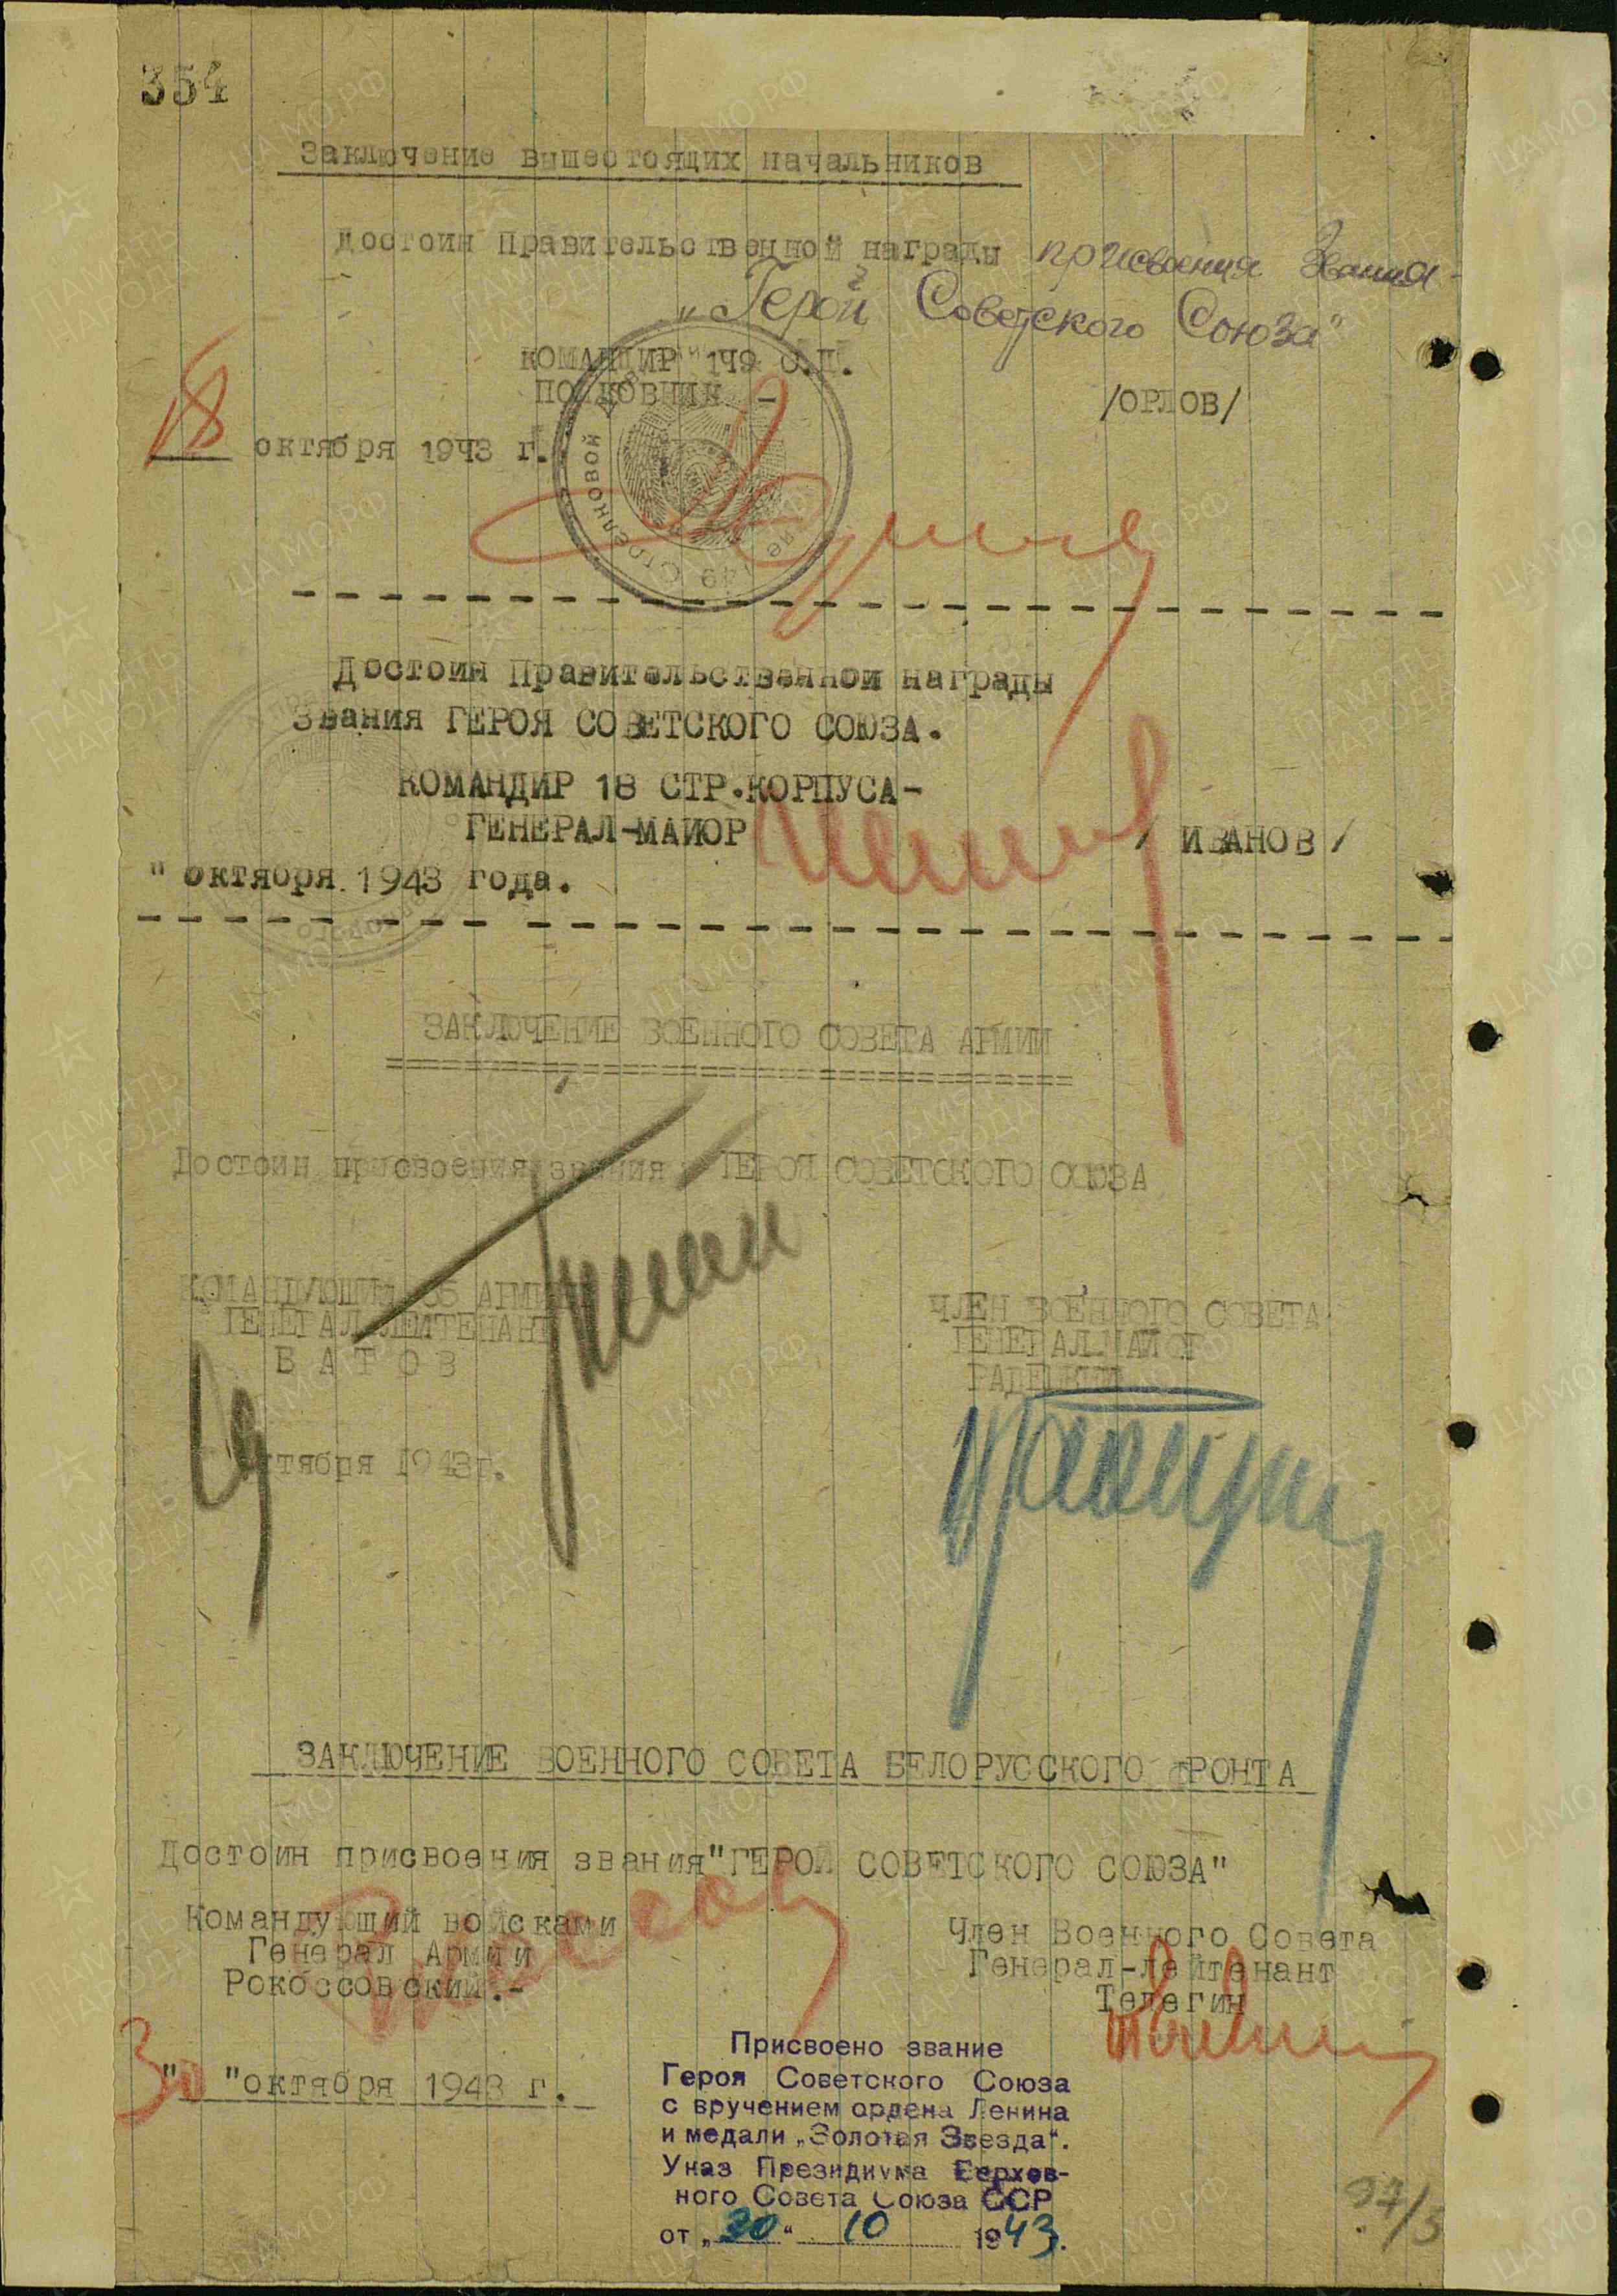 354
Заключение вышестоящих начальников
достоин Правительственной награды присвоения Звания
„Герой Советского Союза"
КОМАНДИР 149 С.Д.
ПОЛКОВНИК - /ОРЛОВ/
18 октября 1943 г.
149 Стрелковой
Достоин Правительственной награды
Звания ГЕРОЯ СОВЕТСКОГО СОЮЗА.
КОМАНДИР 18 СТР.КОРПУСА-
ГЕНЕРАЛ-МАЙОР / ИВАНОВ /
" октября 1943 года.
ЗАКЛЮЧЕНИЕ ВОЕННОГО СОВЕТА АРМИИ
Достоин присвоения звания ГЕРОЯ СОВЕТСКОГО СОЮЗА
КОМАНДУЮЩИЙ 65 АРМИ
ГЕНЕРАЛ-ЛЕЙТЕНАНТ
БАТОВ
ЧЛЕН ВОЕННОГО СОВЕТА
ГЕНЕРАЛ-МАЙОР
РАДЕЦКИЙ
октября 1943г.
ЗАКЛЮЧЕНИЕ ВОЕННОГО СОВЕТА БЕЛОРУССКОГО ФРОНТА
Достоин присвоения звания "ГЕРОЙ СОВЕТСКОГО СОЮЗА"
Командующий войсками
Генерал Армии
Рокоссовский.-
Член Военного Совета
Генерал-лейтенант
Телегин
"30"октября 1943 г.
Присвоено звание
Героя Советского Союза
с вручением ордена Ленина
и медали „Золотая Звезда".
Указ Президиума Верхов-
ного Совета Союза ССР
от „30" 10 1943.